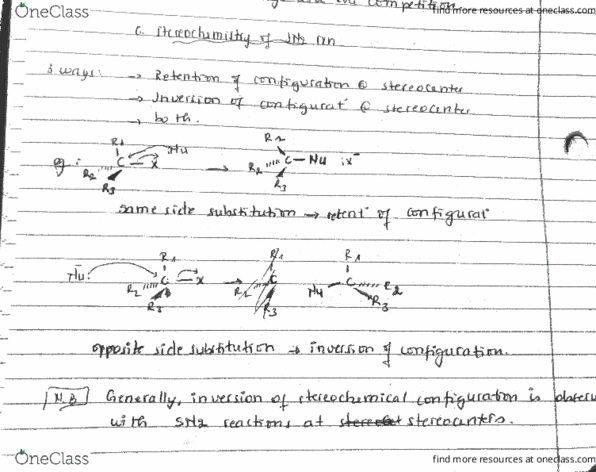 OneClass
find more resources at oneclass.com
competition
C. Stereochemistry of SN2 rxn
3 ways: → Retention of configuration @ stereocenter
→ Inversion of configurat @ stereocenter
→ both.
eg:
R1 :Nu
R2 C—X → R2 C—Nu :X⁻
R2 R3 R3
same side substitution → retent of configurat
R1 R1 R1
Nu: C—X → C Nu C R2
R2 R3 R2 R3 R3
opposite side substitution → inversion of configuration.
N.B Generally, inversion of stereochemical configuration is observ
with SN2 reactions at stereocenters.
OneClass
find more resources at oneclass.com